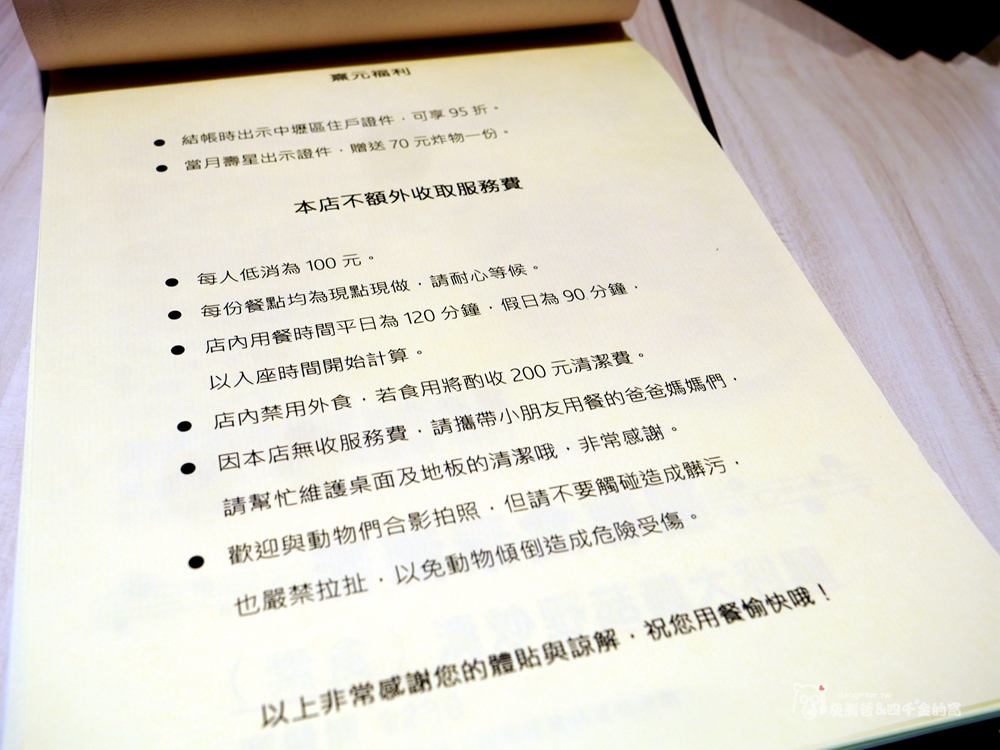 熏元福利
● 結帳時出示中壢區住戶證件，可享 95 折。
● 當月壽星出示證件，贈送 70 元炸物一份。
本店不額外收取服務費
● 每人低消為 100 元。
● 每份餐點均為現點現做，請耐心等候。
● 店內用餐時間平日為 120 分鐘，假日為 90 分鐘，
以入座時間開始計算。
● 店內禁用外食，若食用將酌收 200 元清潔費。
● 因本店無收服務費，請攜帶小朋友用餐的爸爸媽媽們，
請幫忙維護桌面及地板的清潔哦，非常感謝。
● 歡迎與動物們合影拍照，但請不要觸碰造成髒污，
也嚴禁拉扯，以免動物傾倒造成危險受傷。
以上非常感謝您的體貼與諒解，祝您用餐愉快哦！